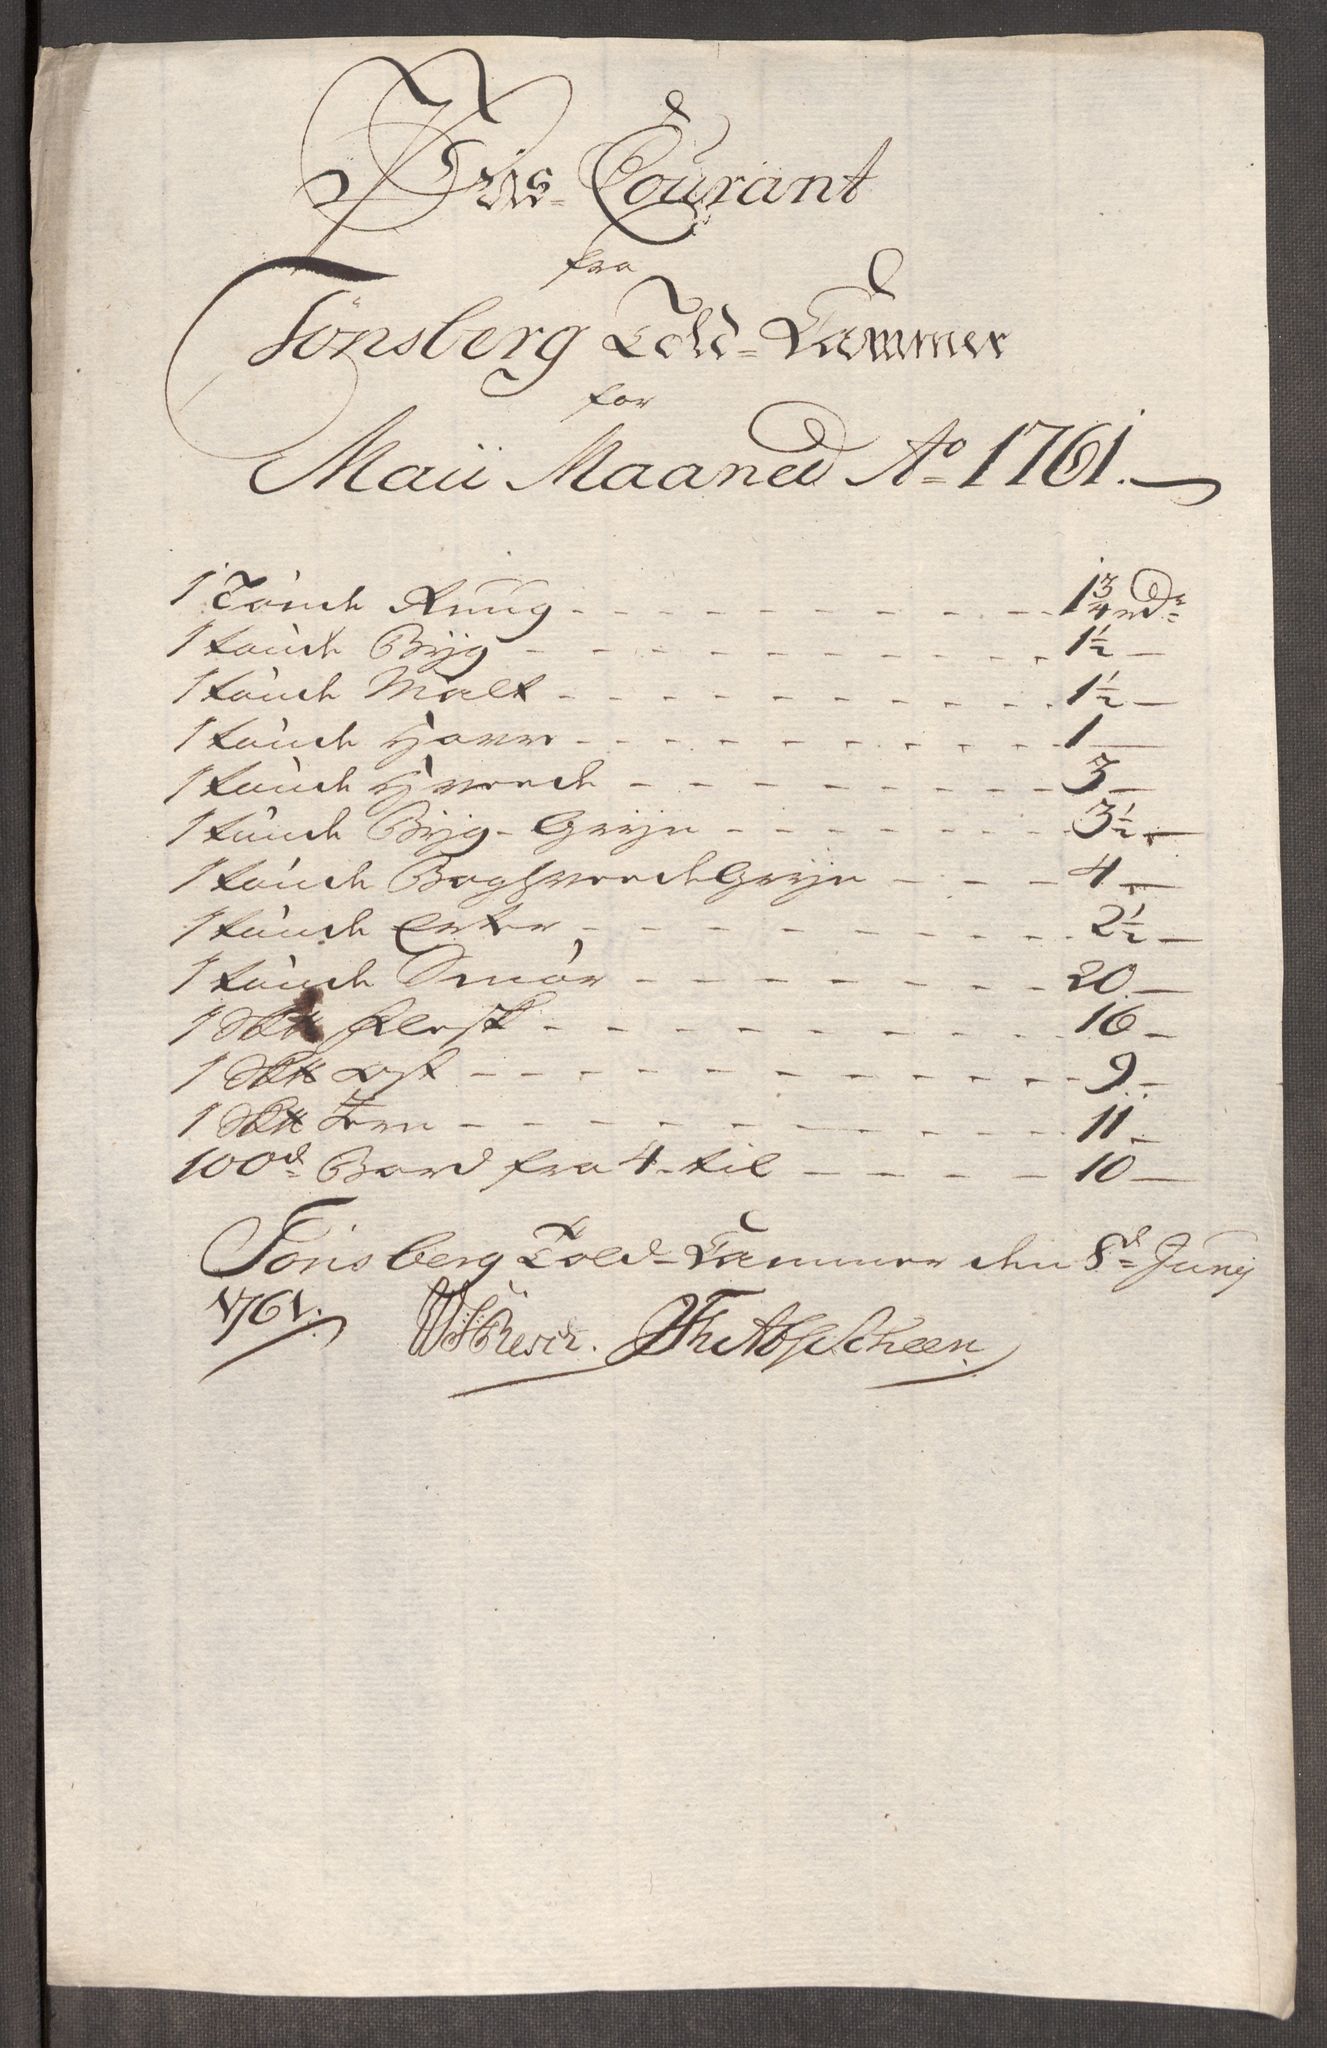 Priis-Courant
fra
Tönsberg Told-Cammer
for
Maii Maaned Ao 1761.
1 Tönde Ruug - - - 1 3/4 rd
1 tönde Byg - - - 1 1/2 -
1 tönde Malt - - - 1 1/2 -
1 tönde Havre - - - 1 -
1 tönde Hvede - - - 3 -
1 tönde Byg-Gryn - - - 3 1/2 -
1 tönde BoghvedeGryn - - - 4 -
1 tönde Erter - - - 2 1/2 -
1 tönde Smör - - - 20 -
1 Sk℔ Flesk - - - 16 -
1 Sk℔ Ost - - - 9 -
1 Sk℔ Jern - - - 11 -
100d Bord fra 4 til - - - 10 -
Tönsberg Told-Cammer den 8d Junij
1761.